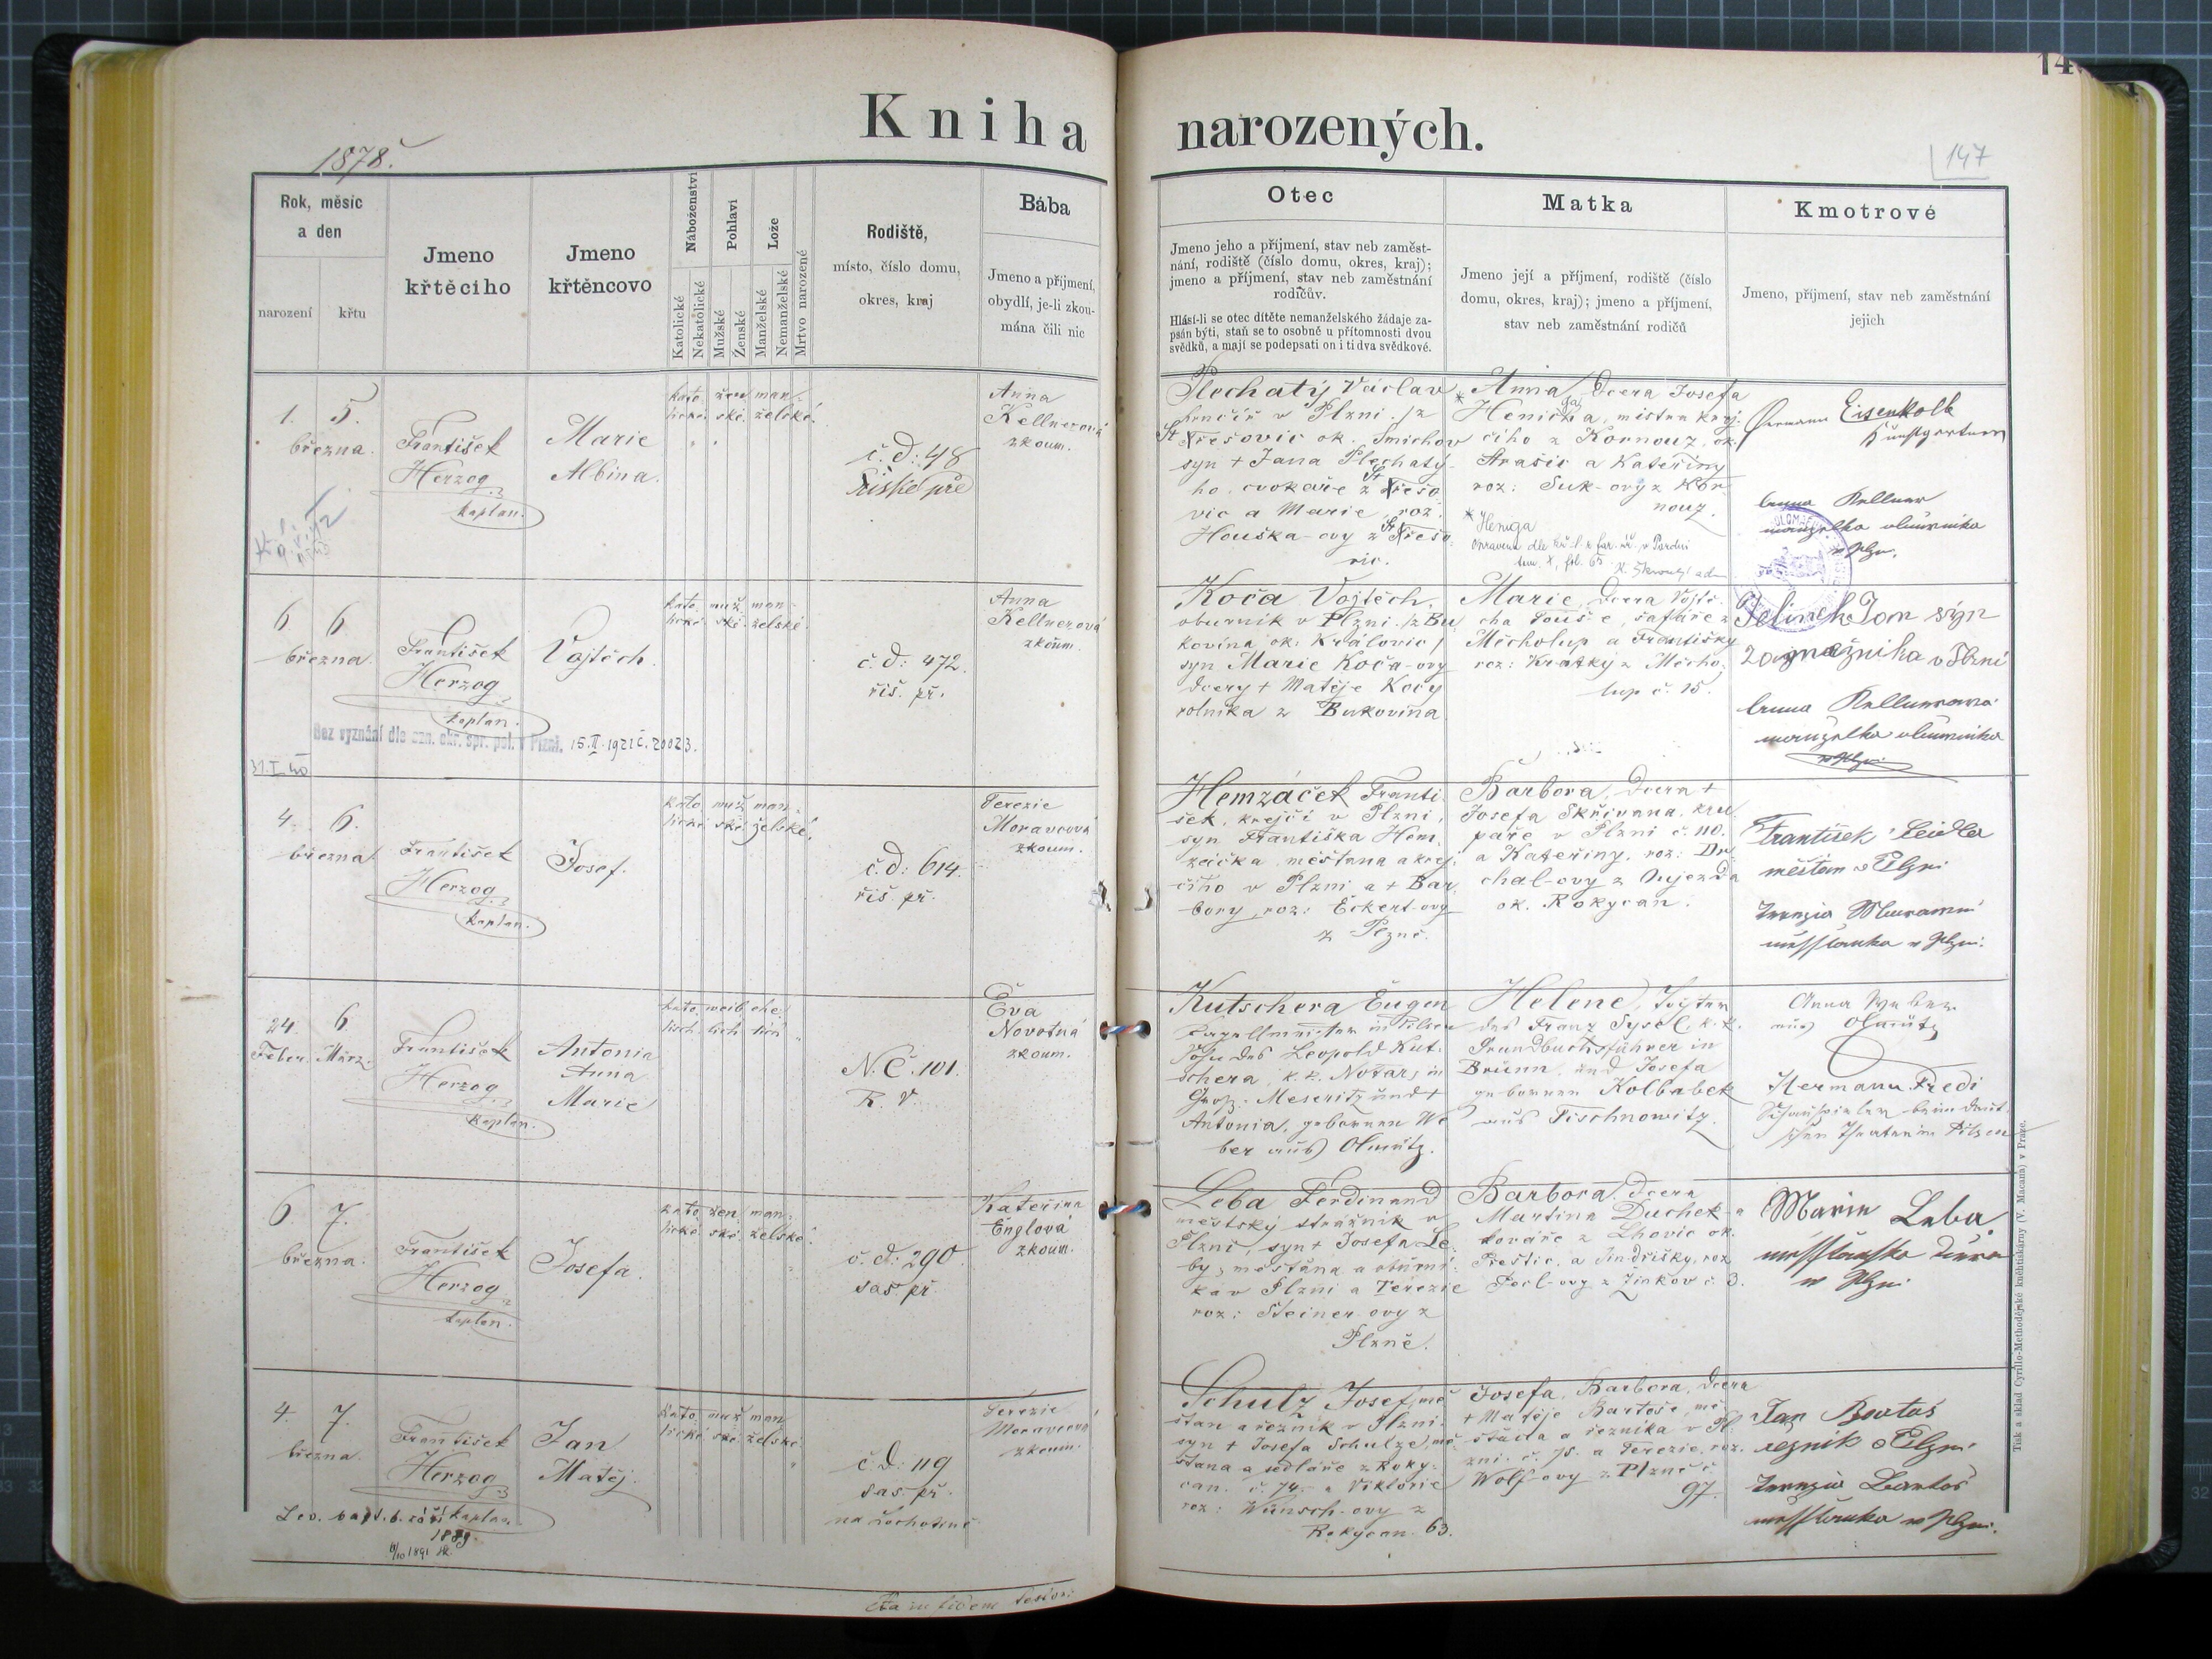 Kniha narozených.
1878.
147
Rok, měsíc
a den
narození
křtu
Jmeno
křtěcího
Jmeno
křtěncovo
Náboženství
Katolické
Nekatolické
Pohlaví
Mužské
Ženské
Lože
Manželské
Nemanželské
Mrtvo narozené
Rodiště,
místo, číslo domu,
okres, kraj
Bába
Jmeno a přijmení,
obydlí, je-li zkou-
mána čili nic
Otec
Jmeno jeho a příjmení, stav neb zaměst-
nání, rodiště (číslo domu, okres, kraj);
jmeno a příjmení, stav neb zaměstnání
rodičův.
Hlásí-li se otec dítěte nemanželského žádaje za-
psán býti, staň se to osobně u přítomnosti dvou
svědků, a mají se podepsati on i ti dva svědkové.
Matka
Jmeno její a příjmení, rodiště (číslo
domu, okres, kraj); jmeno a příjmení,
stav neb zaměstnání rodičů
Kmotrové
Jmeno, příjmení, stav neb zaměstnání
jejich
1. 5.
března.
František
Herzog
kaplan.
Marie
Albina.
kato. žen. man-
lické. ské. želské.
č. d: 48
Anna
Kellnerová
zkoum.
Plechatý Václav
v Plzni. /z
Střešovic ok. Smichov
syn + Jana Plechatý-
ho, cvokaře z Střešo
vic a Marie, roz.
Houška-ovy z Střešo
vic.
* Anna, dcera Josefa
Henicha, mistra krej-
čího z Kornouz, ok.
a Kateřiny
roz: Suk-ovy z Kor
nouz.
* Heniga
Eisenkolb
Anna Kellner
manželka
v Plzn.
6 6
března.
František
Herzog
kaplan.
Vojtěch.
kato. muž. man-
lické. ské. želské.
č. d: 472.
řiš. př.
Anna
Kellnerová
zkoum.
Bez vyznání dle ozn. okr. spr. pol. v Plzni. 15.II.1921 č. 20023.
31.I.40
Koča Vojtěch,
obuvník v Plzni. /z Bu
kovina ok: Královic/
syn Marie Koča-ovy
dcery + Matěje Kočy
rolníka z Bukovina
Marie, dcera Vojtě-
cha Touše, šafáře z
Měcholup a Františky
roz: Krátký z Měcho-
lup č. 15.
Jelinek Jan syn
v Plzni
Anna Kellnerova
manželka
v Plzni
4. 6.
března.
František
Herzog
kaplan.
Josef.
kato. muž. man-
lické. ské. želské.
č. d: 614.
řiš. př.
Terezie
Moravcová
zkoum.
Hemzáček Franti-
šek, krejčí v Plzni,
syn Františka Hem-
záčka měšťana a krej-
čího v Plzni a + Bar-
bory, roz: Eckert-ovy
z Plzně.
Barbora, dcera +
Josefa Skřivana, kru
paře v Plzni č. 110.
a Kateřiny, roz: Dr
chal-ovy z Oujezda
ok. Rokycan.
František Leidler
měšťan v Plzni
v Plzni.
24. 6.
Feber. März.
František
Herzog
kaplan.
Antonia
Anna
Marie
kato- weib- ehe-
lisch. lich. lich
N. Č. 101.
R. V.
Eva
Novotná
zkoum.
Kutschera Eugen
Kapellmeister in Pilsen
Sohn des Leopold Kut-
schera, k. k. Notars in
Groß-Meseritz und +
Antonia, geborenen We
ber aus Olmütz.
Helene, Tochter
des Franz Sysel, k. k.
Grundbuchsführer in
Brünn, und Josefa
geborenen Kolbabek
aus Tischnowitz.
Anna Weber
aus Olmütz
Hermann Fredi
Schauspieler beim deut-
schen Theater in Pilsen
6 7.
března.
František
Herzog
kaplan.
Josefa.
kato. žen. man-
lické. ské. želské.
č. d: 290.
sas. př.
Kateřina
Englová
zkoum.
Leba Ferdinand
městský strážník v
Plzni, syn + Josefa Le-
by, měšťana a obuvní-
ka v Plzni a Terezie
roz: Steiner-ovy z
Plzně.
Barbora, dcera
Martina Duchek-a
kováře z Lhovic ok.
Přeštic, a Jindřišky, roz.
z Žinkov č. 3.
Marie Leba
měšťanska dcera
v Plzni
4. 7.
března.
František
Herzog
kaplan.
Jan
Matěj.
kato. muž. man-
lické. ské. želské.
č. d: 119
sas. př.
na Lochotíně
Terezie
Moravcová
zkoum.
1889.
Schulz Josef, mě-
šťan a řezník v Plzni.
syn + Josefa Schulze, mě-
šťana a sedláře z Roky-
can. č. 74. a Viktorie
roz: Wünsch-ovy z
Rokycan. 63.
Josefa, Barbora, dcera
+ Matěje Bartoše, mě-
šťana a řezníka v Pl
zni. č. 75. a Terezie, roz.
Wolf-ovy z Plzně č.
97.
Jan Bartoš
řezník v Plzni
Terezia Bartoš
měšťanka v Plzni.
Tisk a sklad Cyrillo-Methodějské knihtiskárny (V. Macanа) v Praze.